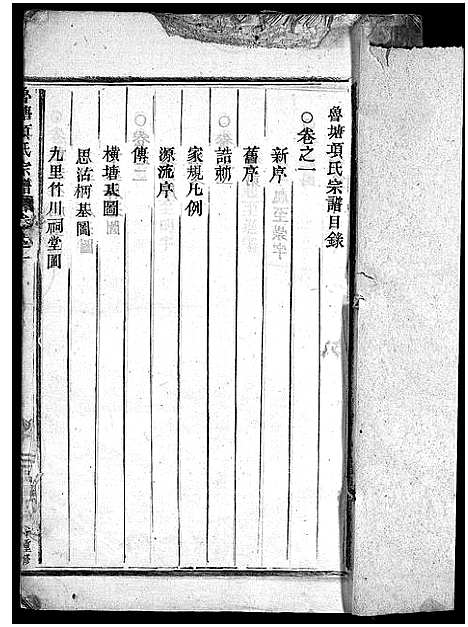 魯塘項氏宗譜目錄
○卷之一
新序
舊序
誥勅
家規凡例
源流序
傳
橫塘基圖
思浯柄基圖
九里竹川祠堂圖
魯塘項氏宗譜
重修